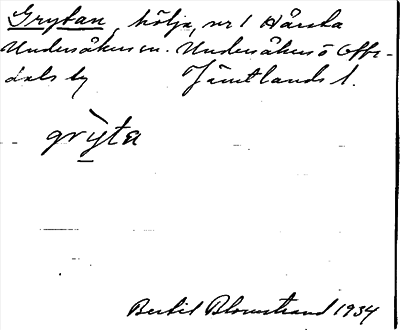 Grytan, hölja, nr 1 Hårsta
Undersåkers sn. Undersåkers o Offer-
dals by Jämtlands l.
grỳta
Bertil Blomstrand 1934